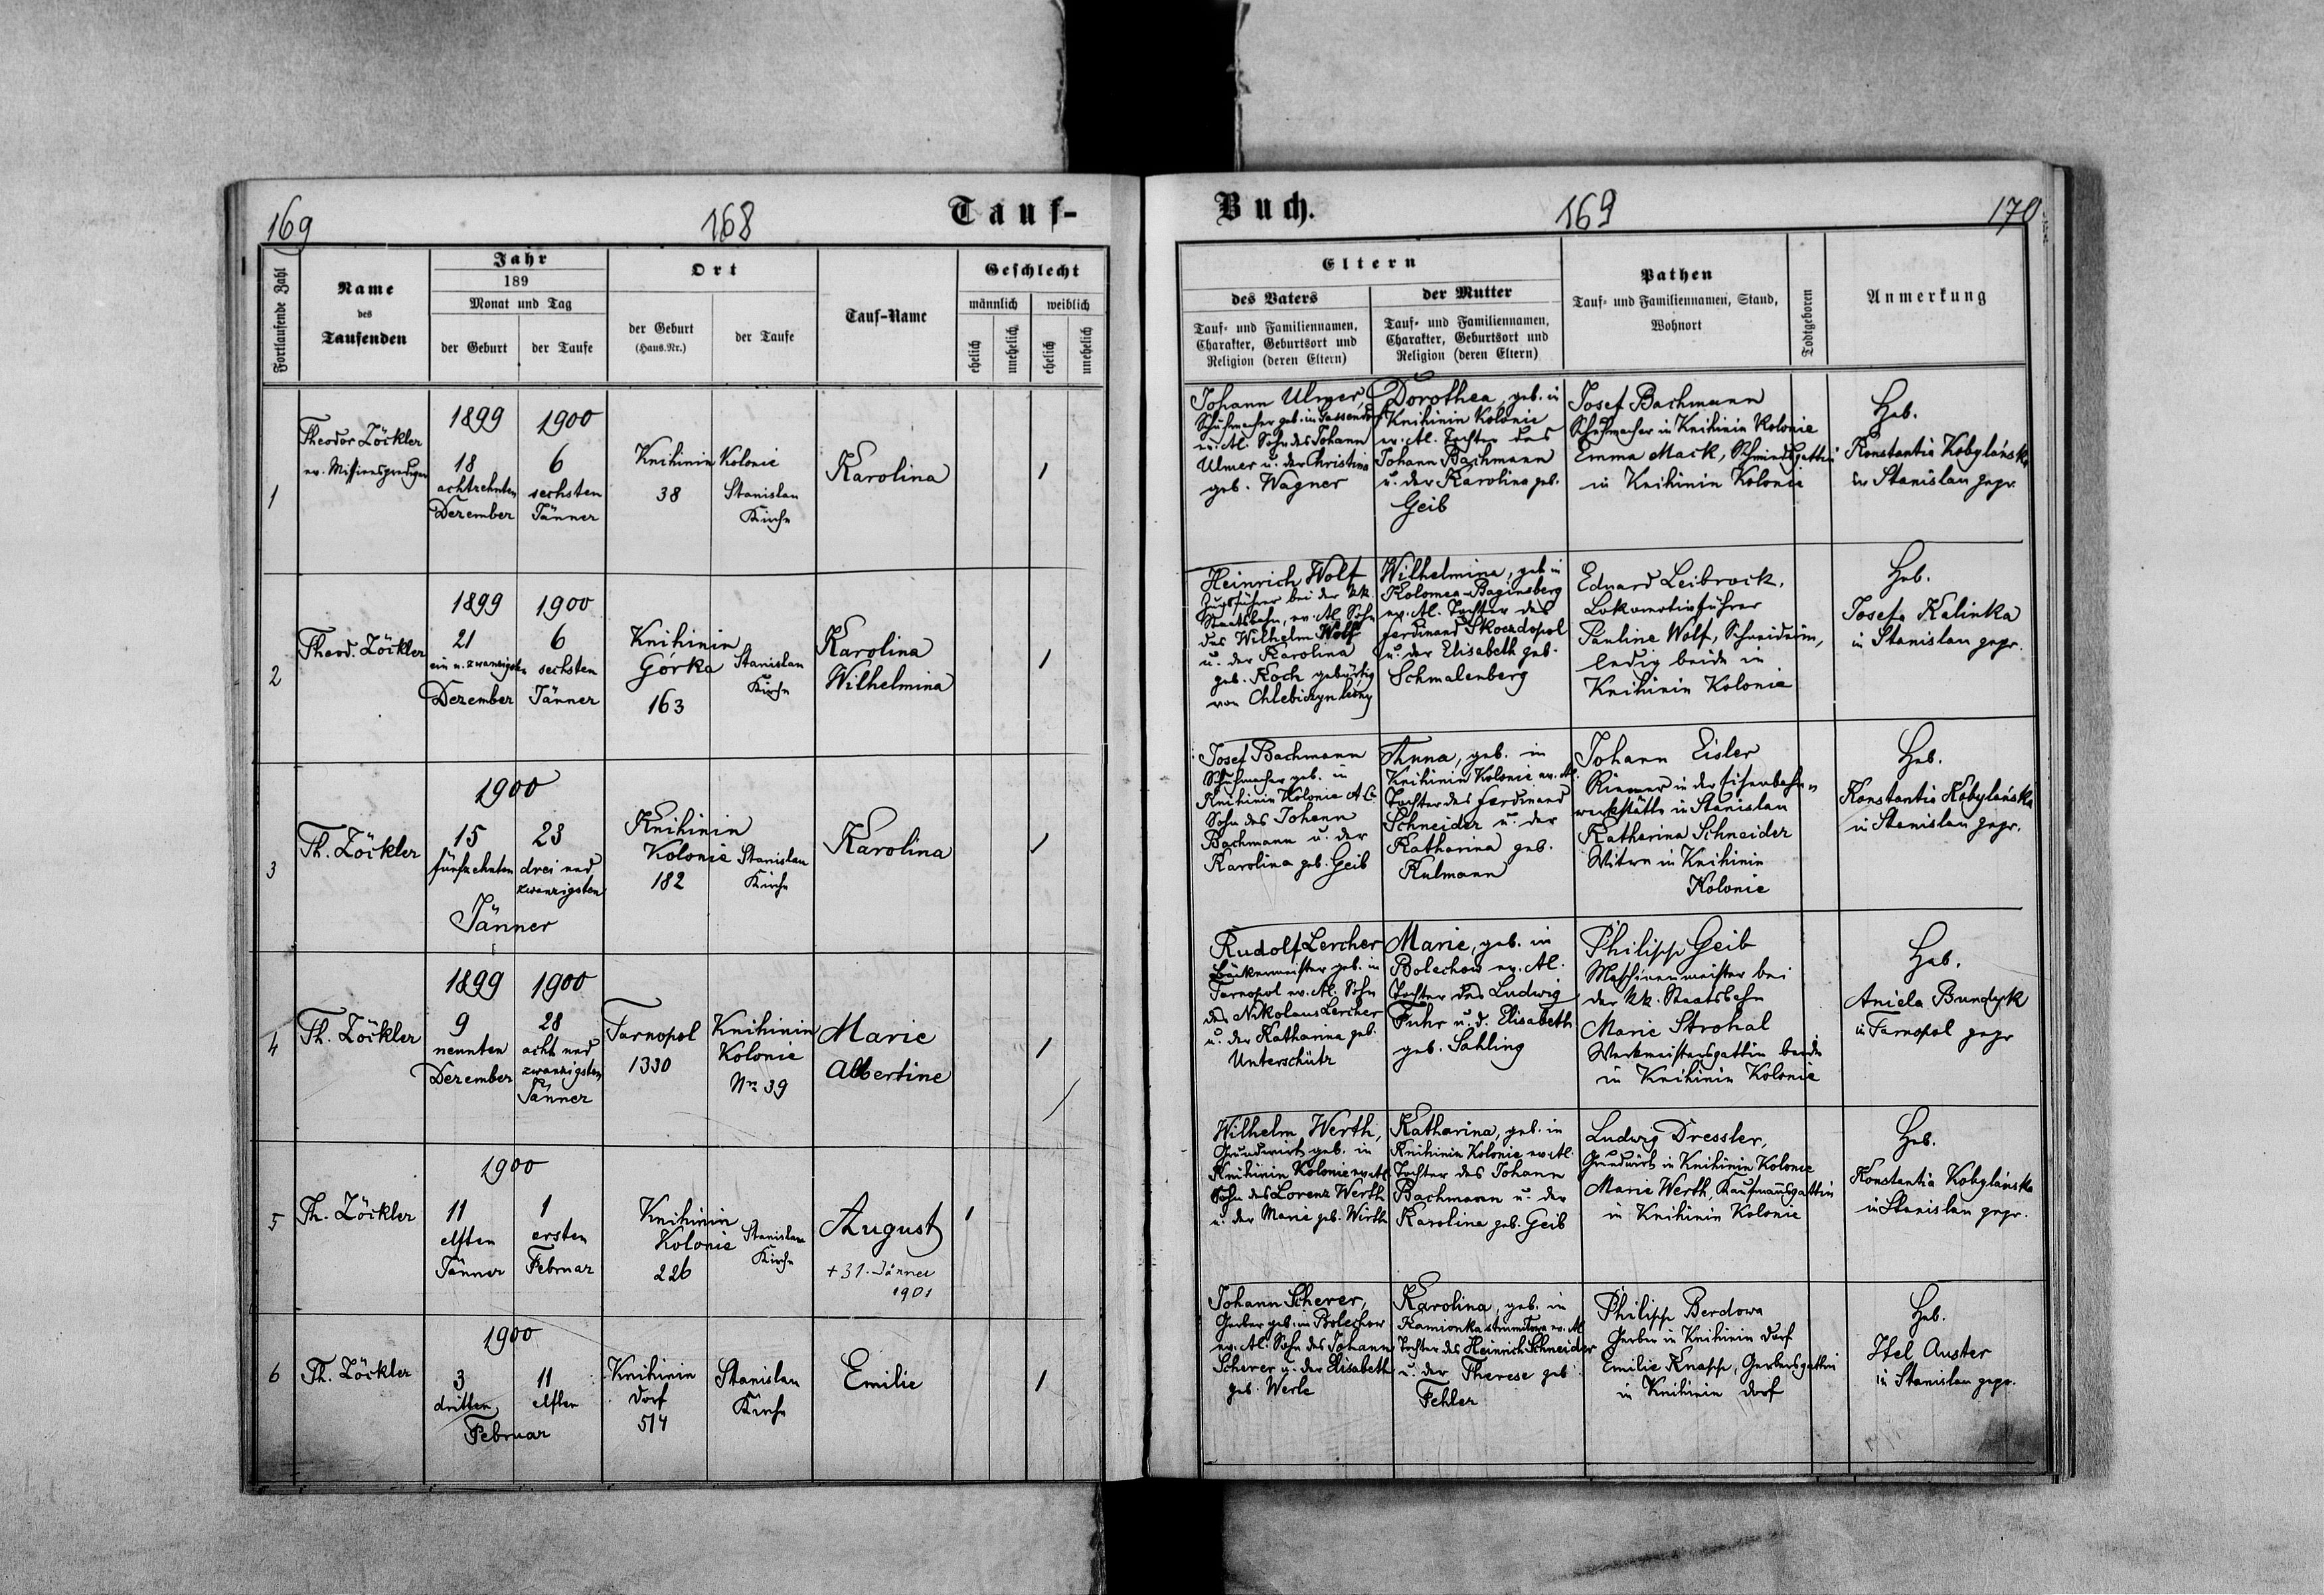 169
168
Tauf-
Buch.
169
170
Fortlaufende Zahl
Name
des
Taufenden
Jahr
189
Monat und Tag
der Geburt
der Taufe
Ort
der Geburt
(Haus-Nr.)
der Taufe
Tauf-Name
Geschlecht
männlich
weiblich
ehelich
unehelich
ehelich
unehelich
Eltern
des Vaters
Tauf- und Familiennamen,
Charakter, Geburtsort und
Religion (deren Eltern)
der Mutter
Tauf- und Familiennamen,
Charakter, Geburtsort und
Religion (deren Eltern)
Pathen
Tauf- und Familiennamen, Stand,
Wohnort
Todtgeboren
Anmerkung
1
Theodor Zöckler
ev. Missionsprediger
1899
18
achtzehnten
Dezember
1900
6
sechsten
Jänner
Knihinin Kolonie
38
Stanislau
Kirche
Karolina
1
Johann Ulmer,
Schuhmacher geb. in
ev. Al. Sohn des Johann
Ulmer u. der Christina
geb. Wagner
Dorothea, geb. in
Knihinin Kolonie
ev. Al. Tochter des
Johann Bachmann
u. der Karolina geb.
Geib
Josef Bachmann
Schuhmacher in Knihinin Kolonie
Emma Mack, Schmiedsgattin
in Knihinin Kolonie
Heb.
Konstantia Kobylańska
in Stanislau gepr.
2
Theod. Zöckler
1899
21
ein u. zwanzigsten
Dezember
1900
6
sechsten
Jänner
Knihinin
Górka
163
Stanislau
Kirche
Karolina
Wilhelmina
1
Heinrich Wolf
Zugsführer bei der kk.
Staatsbahn, ev. Al. Sohn
des Wilhelm Wolf
u. der Karolina
geb. Koch gebürtig
von Chlebiczyn leśny
Wilhelmina, geb in
Kolomea-Baginsberg
ev. Al. Tochter des
Ferdinand Skoczdopol
u. der Elisabeth geb.
Schmalenberg
Eduard Leibrock,
Lokomotivführer
Pauline Wolf, Schneiderin,
ledig beide in
Knihinin Kolonie
Heb.
Josefa Kalinka
in Stanislau gepr.
3
Th. Zöckler
1900
15
fünfzehnten
23
drei und
zwanzigsten
Jänner
Knihinin
Kolonie
182
Stanislau
Kirche
Karolina
1
Josef Bachmann
Schuhmacher geb. in
Knihinin Kolonie
Sohn des Johann
Bachmann u. der
Karolina geb. Geib
Anna, geb. in
Knihinin Kolonie ev. Al.
Tochter des Ferdinand
Schneider u. der
Katharina geb.
Kulmann
Johann Eisler
Riemer in der Eisenbahn-
werkstätte in Stanislau
Katharina Schneider
Witwe in Knihinin
Kolonie
Heb.
Konstantia Kobylańska
in Stanislau gepr.
4
Th. Zöckler
1899
9
neunten
Dezember
1900
28
acht und
zwanzigsten
Jänner
Tarnopol
1330
Knihinin
Kolonie
Nr. 39
Marie
Albertine
1
Rudolf Lercher
Bäckermeister geb. in
Tarnopol ev. Al. Sohn
des Nikolaus Lercher
u. der Katharina geb.
Unterschütz
Marie, geb. in
Bolechow ev. Al.
Tochter des Ludwig
Fuhr u. d. Elisabeth
geb. Sahling
Philipp Geib
Maschinenmeister bei
der kk. Staatsbahn
Marie Strohal
Werkmeistersgattin beide
in Knihinin Kolonie
Heb.
Aniela Bundyk
in Tarnopol gepr
5
Th. Zöckler
1900
11
elften
Jänner
1
ersten
Februar
Knihinin
Kolonie
226
Stanislau
Kirche
August
+ 31. Jänner
1901
1
Wilhelm Werth,
Grundwirth geb. in
Knihinin Kolonie ev. Al.
Sohn des Lorenz Werth
u. der Marie geb. Wirth
Katharina, geb. in
Knihinin Kolonie ev. Al.
Tochter des Johann
Bachmann u. der
Karolina geb. Geib
Ludwig Dressler,
Grundwirth in Knihinin Kolonie
Marie Werth, Kaufmannsgattin
in Knihinin Kolonie
Heb.
Konstantia Kobylańska
in Stanislau gepr.
6
Th. Zöckler
1900
3
dritten
11
elften
Februar
Knihinin
Dorf
514
Stanislau
Kirche
Emilie
1
Johann Scherer,
Gerber geb. in Bolechow
ev. Al. Sohn des Johann
Scherer u. der Elisabeth
geb. Werle
Karolina, geb. in
Kamionka strumilowa ev. Al
Tochter des Heinrich Schneider
u. der Therese geb.
Fehler
Philipp Berdowa
Gerber in Knihinin Dorf
Emilie Knapp, Gerbersgattin
in Knihinin Dorf
Heb.
Itel Auster
in Stanislau gepr.